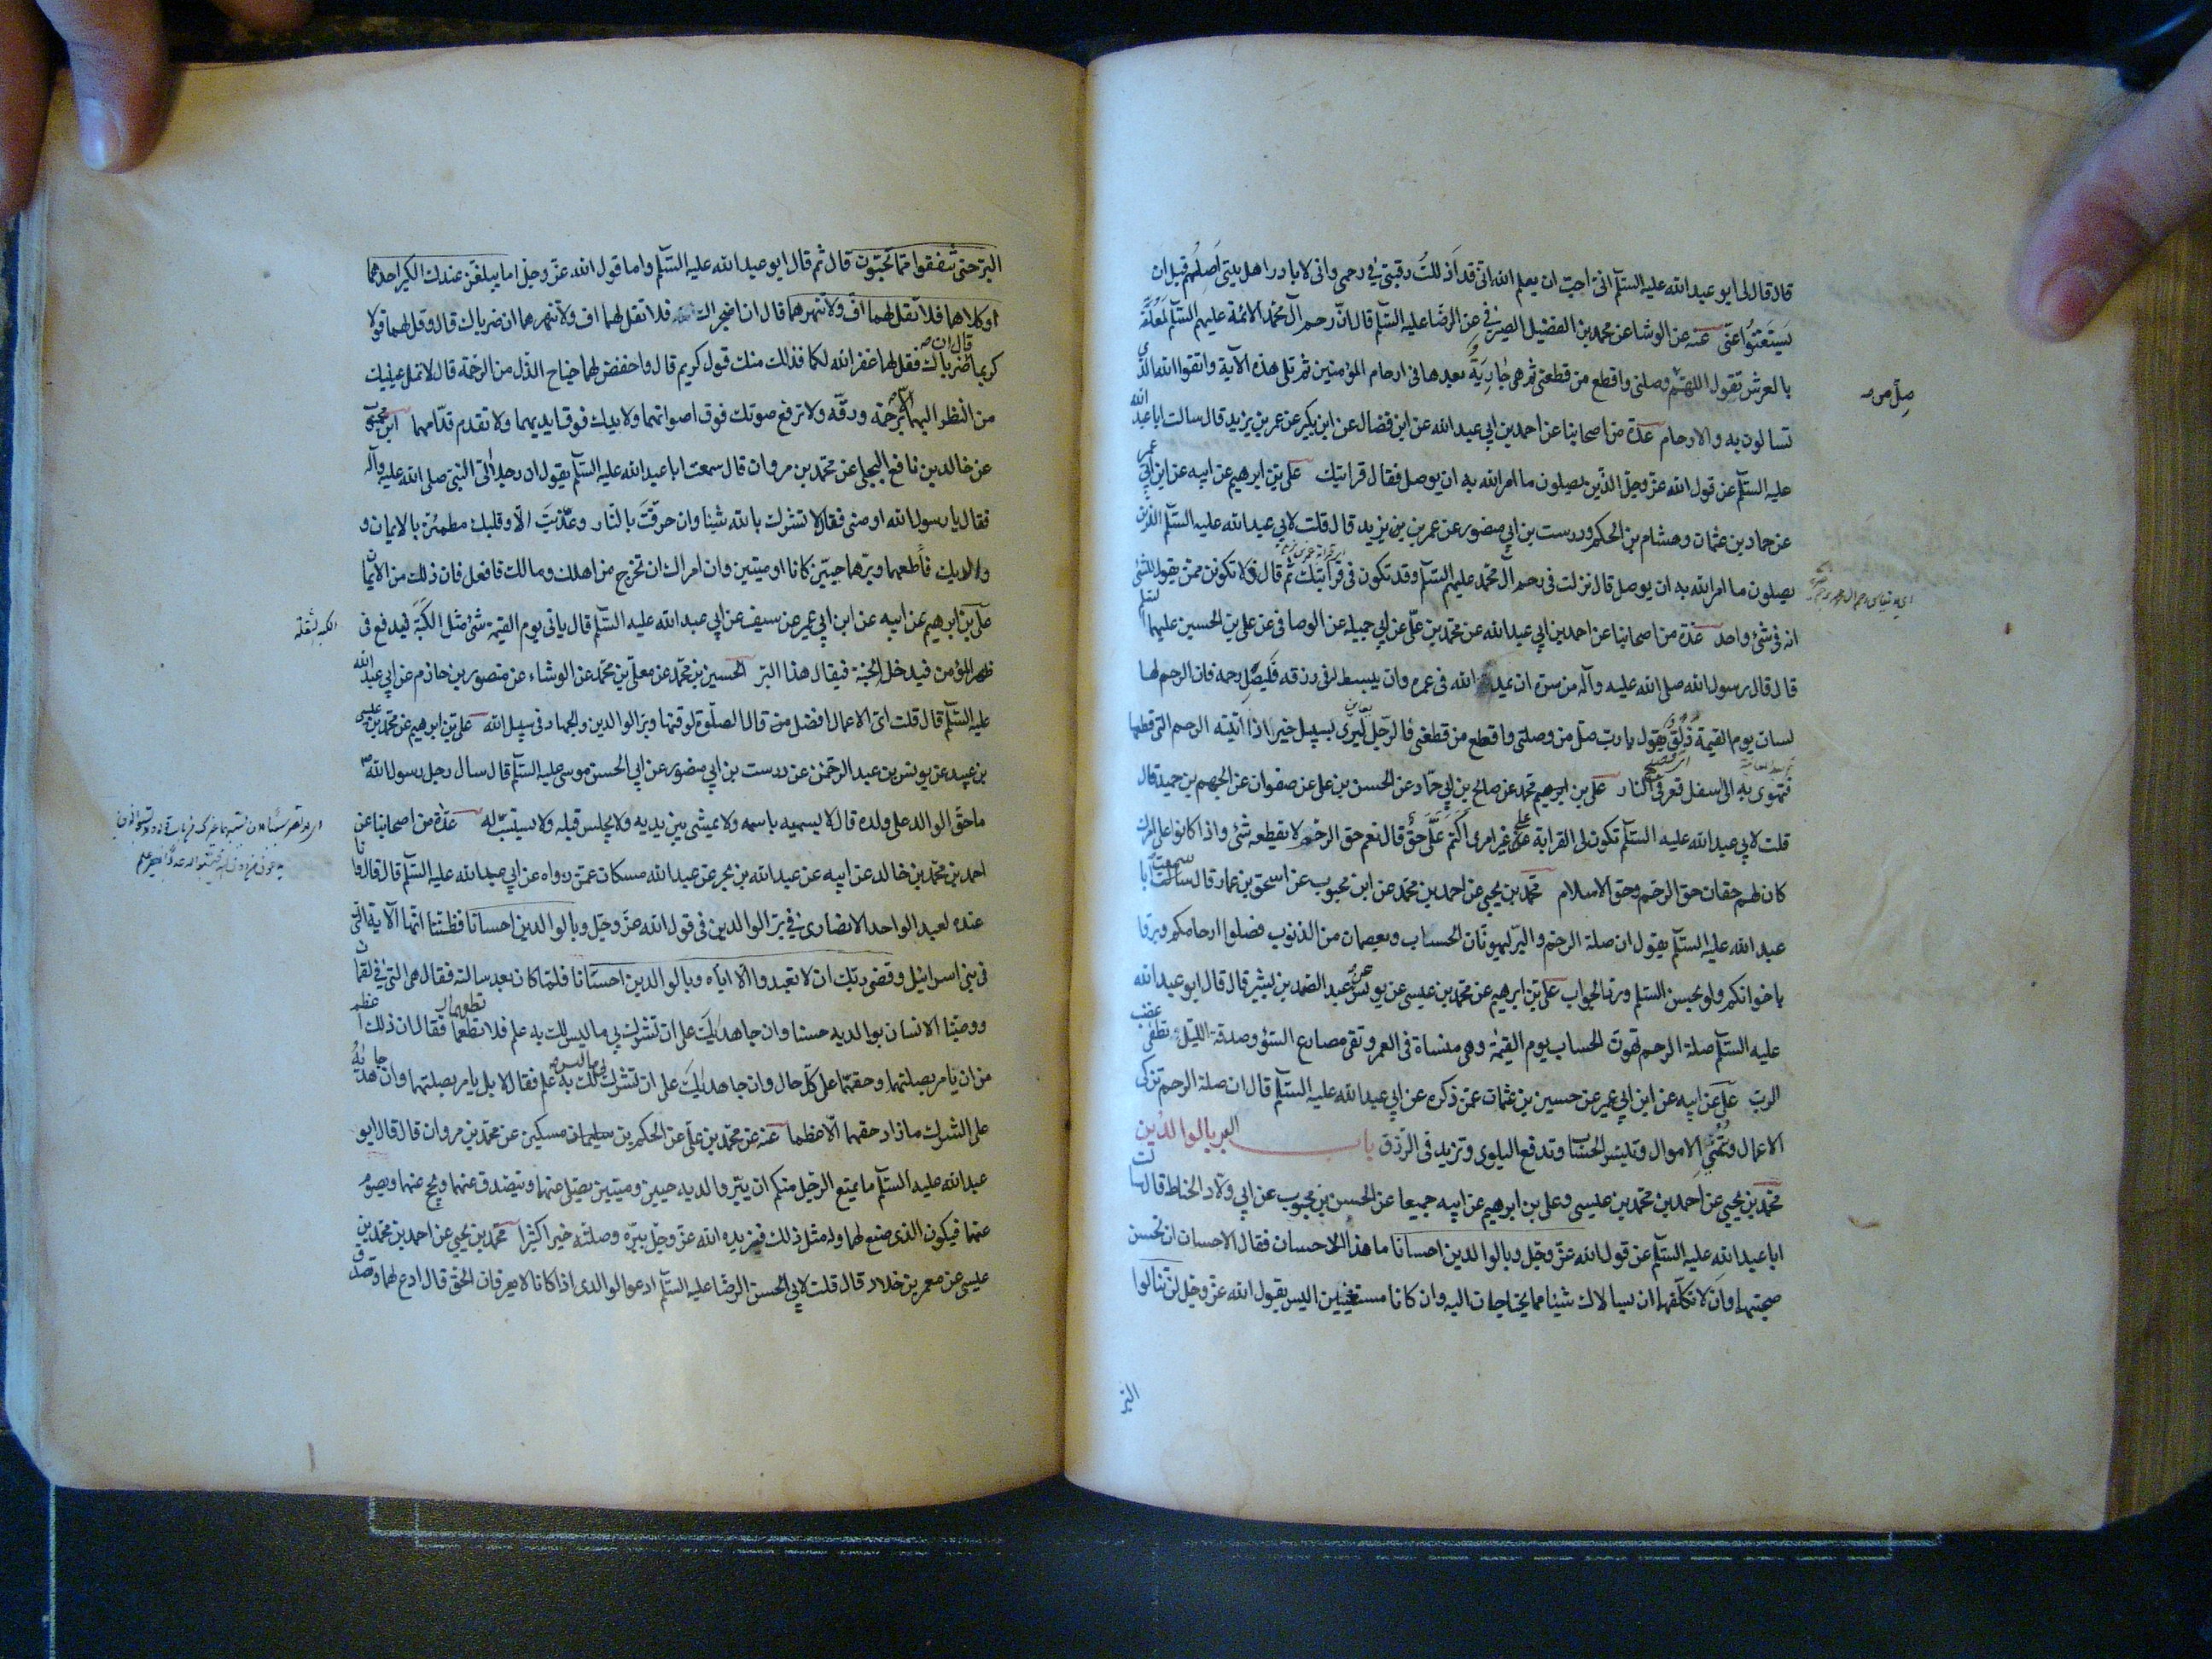 قال قال لى ابو عبد الله عليه السلم انى احب ان يعلم الله انى قد اذللت رقبتى فى رحمى وانى لابادر اهل بيتى اصلهم قبل ان
يستغنوا عنى عنه عن الوشا عن محمد بن الفضيل الصيرفى عن الرضا عليه السلم قال ان رحم آل محمد الائمة عليهم السلم لمعلقة
بالعرش تقول اللهم صل من وصلنى واقطع من قطعنى ثم هى جارية بعدها فى ارحام المؤمنين ثم تلى هذه الآية واتقوا الله الذى
صل من صه
تسالون به والارحام عدة من اصحابنا عن احمد بن ابى عبد الله عن ابن فضال عن ابن بكير عن عمر بن يزيد قال سالت ابا عبد الله
عليه السلم عن قول الله عز وجل الذين يصلون ما امر الله به ان يوصل فقال قرابتك على بن ابرهيم عن ابيه عن ابن ابى عمير
عن حماد بن عثمان وهشام بن الحكم ودرست بن ابى منصور عن عمر بن يزيد قال قلت لابى عبد الله عليه السلم الذين
يصلون ما امر الله به ان يوصل قال نزلت فى رحم آل محمد عليهم السلم وقد تكون فى قرابتك ثم قال فلا تكونن ممن يقول للشئ
انه فى شئ واحد عدة من اصحابنا عن احمد بن ابى عبد الله عن محمد بن على عن ابى جميله عن الوصافى عن على بن الحسين عليهما السلم
قال قال رسول الله صلى الله عليه وآله من سره ان يمد الله فى عمره وان يبسط له فى رزقه فليصل رحمه فان الرحم لها
لسان يوم القيمة ذلق يقول يا رب صل من وصلنى واقطع من قطعنى فالرجل ليرى بسبيل خير اذا اتته الرحم التى قطعها
فتهوى به الى اسفل قعر فى النار على بن ابرهيم محمد عن صالح بن ابى حماد عن الحسن بن على عن صفوان عن الجهم بن حميد قال
قلت لابى عبد الله عليه السلم تكون لى القرابة على غير امرى الهم على حق قال نعم حق الرحم لا يقطعه شئ واذا كانوا على امرك
كان لهم حقان حق الرحم وحق الاسلام محمد بن يحيى عن احمد بن محمد عن ابن محبوب عن اسحق بن عمار قال سمعت ابا
عبد الله عليه السلم يقول ان صلة الرحم والبر ليهونان الحساب ويعصمان من الذنوب فصلوا ارحامكم وبروا
باخوانكم ولو بحسن السلم ورد الجواب على بن ابرهيم عن محمد بن عيسى عن يونس عن عبد الصمد بن بشير قال قال ابو عبد الله
عليه السلم صلة الرحم تهون الحساب يوم القيمة وهى منساة فى العمر وتقى مصارع السوء وصدقة الليل تطفى غضب
الرب على عن ابيه عن ابن ابى عمير عن حسين بن عثمان عمن ذكره عن ابى عبد الله عليه السلم قال ان صلة الرحم تزكى
الاعمال وتنمى الاموال وتيسر الحساب وتدفع البلوى وتزيد فى الرزق باب البر بالوالدين
محمد بن يحيى عن احمد بن محمد بن عيسى وعلى بن ابرهيم عن ابيه جميعا عن الحسن بن محبوب عن ابى ولاد الحناط قال سالت
ابا عبد الله عليه السلم عن قول الله عز وجل وبالوالدين احسانا ما هذا الاحسان فقال الاحسان ان تحسن
صحبتهما وان لا تكلفهما ان يسالاك شيئا مما يحتاجان اليه وان كانا مستغنيين اليس يقول الله عز وجل لن تنالوا
البر
البر حتى تنفقوا مما تحبون قال ثم قال ابو عبد الله عليه السلم واما قول الله عز وجل اما يبلغن عندك الكبر احدهما
او كلاهما فلا تقل لهما اف ولا تنهرهما قال ان اضجراك فلا تقل لهما اف ولا تنهرهما ان ضرباك قال وقل لهما قولا
كريما قال ان ضرباك فقل لهما غفر الله لكما فذلك منك قول كريم قال واخفض لهما جناح الذل من الرحمة قال لا تمل عينيك
من النظر اليهما الا برحمة ورقة ولا ترفع صوتك فوق اصواتهما ولا يدك فوق ايديهما ولا تقدم قدامهما ابن محبوب
عن خالد بن نافع البجلى عن محمد بن مروان قال سمعت ابا عبد الله عليه السلم يقول ان رجلا اتى النبى صلى الله عليه وآله
فقال يا رسول الله اوصنى فقال لا تشرك بالله شيئا وان حرقت بالنار وعذبت الا وقلبك مطمئن بالايمان و
والديك فاطعهما وبرهما حيين كانا او ميتين وان امراك ان تخرج من اهلك ومالك فافعل فان ذلك من الايمان
على بن ابرهيم عن ابيه عن ابن ابى عمير عن سيف عن ابى عبد الله عليه السلم قال ياتى يوم القيمة شئ مثل الكبة فيدفع فى
ظهر المؤمن فيدخل الجنة فيقال هذا البر الحسين بن محمد عن معلى بن محمد عن الوشاء عن منصور بن حازم عن ابى عبد الله
عليه السلم قال قلت اى الاعمال افضل من قال الصلوة لوقتها وبر الوالدين والجهاد فى سبيل الله على بن ابرهيم عن محمد بن عيسى
بن عبيد عن يونس بن عبد الرحمن عن درست بن ابى منصور عن ابى الحسن موسى عليه السلم قال سال رجل رسول الله ص
ما حق الوالد على ولده قال لا يسميه باسمه ولا يمشى بين يديه ولا يجلس قبله ولا يستسب له عدة من اصحابنا عن
احمد بن محمد بن خالد عن ابيه عن عبد الله بن بحر عن عبد الله مسكان عمن رواه عن ابى عبد الله عليه السلم قال قال وانا
عنده لعبد الواحد الانصارى فى بر الوالدين فى قول الله عز وجل وبالوالدين احسانا فظننا انها الآية التى
فى بنى اسرائيل وقضى ربك ان لا تعبدوا الا اياه وبالوالدين احسانا فلما كان بعد سالته فقال هى التى فى لقمان
ووصينا الانسان بوالديه حسنا وان جاهداك على ان تشرك بى ما ليس لك به علم فلا تطعهما فقال ان ذلك اعظم
من ان يامر بصلتهما وحقهما على كل حال وان جاهداك على ان تشرك بى ما ليس لك به علم فقال لا بل يامر بصلتهما وان جاهداه
على الشرك ما زاد حقهما الا عظما عنه عن محمد بن على عن الحكم بن مسكين عن محمد بن مروان قال قال ابو
عبد الله عليه السلم ما يمنع الرجل منكم ان يبر والديه حيين وميتين يصلى عنهما ويتصدق عنهما ويحج عنهما ويصوم
عنهما فيكون الذى صنع لهما وله مثل ذلك فيزيده الله عز وجل ببره وصلته خيرا كثيرا محمد بن يحيى عن احمد بن محمد بن
عيسى عن معمر بن خلاد قال قلت لابى الحسن الرضا عليه السلم ادعو لوالدى اذا كانا لا يعرفان الحق قال ادع لهما وتصدق